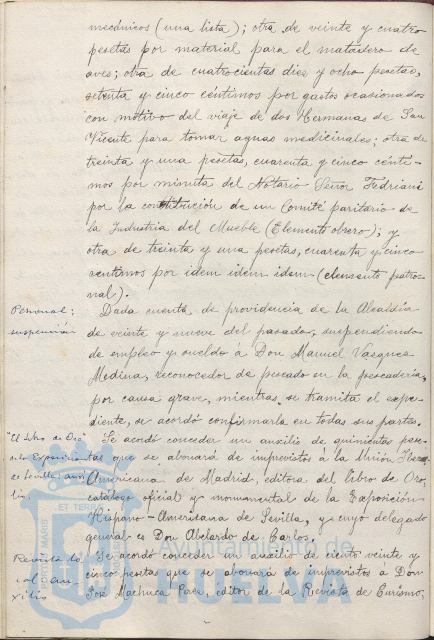 mecánicos (una lista); otra de veinte y cuatro
pesetas por material para el matadero de
aves; otra de cuatrocientas diez y ocho pesetas,
setenta y cinco céntimos por gastos ocasionados
con motivo del viaje de dos Hermanas de San
Vicente para tomar aguas medicinales; otra de
treinta y una pesetas, cuarenta y cinco cénti-
mos por minuta del Notario Señor Fedriani
por la constitución de un Comité paritario de
la Industria del Mueble (Elemento obrero); y
otra de treinta y una pesetas, cuarenta y cinco
centimos por idem idem idem (elemento patro-
nal).
Personal;
suspensión
Dada cuenta de providencia de la Alcaldía
de veinte y nueve del pasado, suspendiendo
de empleo y sueldo á Don Manuel Vasques
Medina, reconocedor de pescado en la pescadería,
por causa grave, mientras se tramita el expe-
diente, se acordó confirmarla en todas sus partes.
"El Libro de Oro
de la Exposición
de Sevilla; auxi
lio
Se acordó conceder un auxilio de quinientas pese-
tas que se abonará de imprevistos á la Unión Ibero
Americana de Madrid, editora del libro de Oro,
catálogo oficial y monumental de la Exposición
Hispano-Americana de Sevilla, y cuyo delegado
general es Don Abelardo de Carlos.
Revista
auxilio
Se acordó conceder un auxilio de ciento veinte y
cinco pesetas que se abonará de imprevistos á Don
José Machuca Paez, editor de la Revista de Turismo,
ET TERRAE
MARIS
Ayuntamiento de
HUELVA